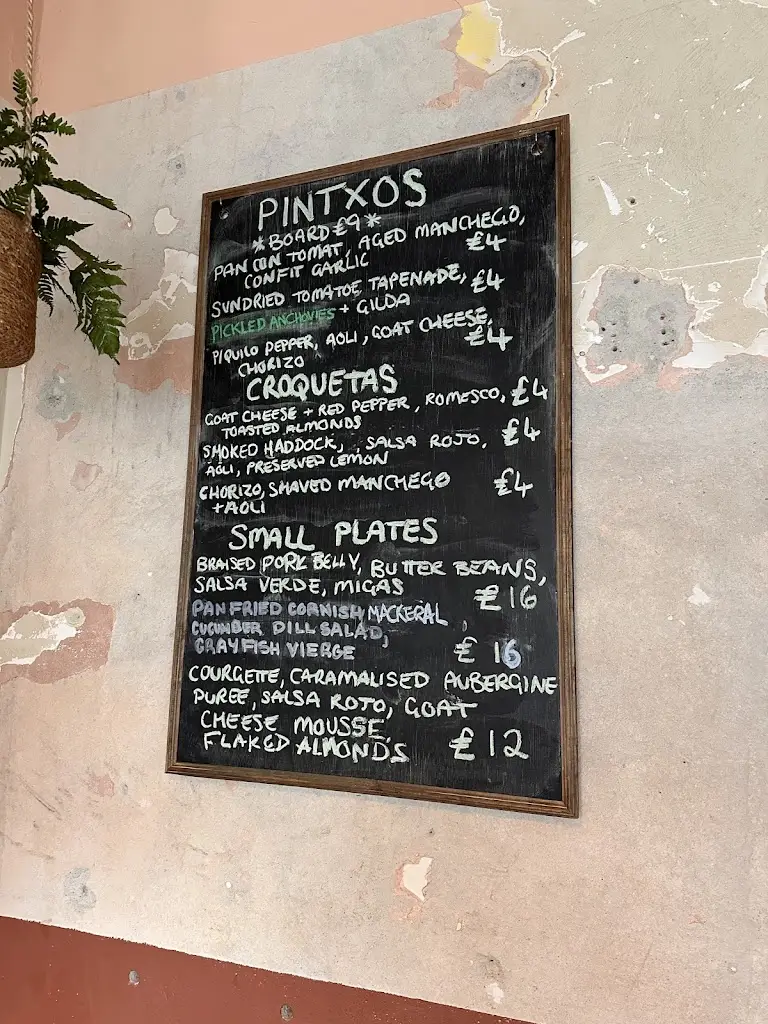 PINTXOS
*BOARD £9*
PAN CON TOMAT, AGED MANCHEGO,
CONFIT GARLIC £4
SUNDRIED TOMATOE TAPENADE, £4
PICKLED ANCHOVIES + GILDA
PIQUILO PEPPER, AOLI, GOAT CHEESE,
CHORIZO £4
CROQUETAS
GOAT CHEESE + RED PEPPER, ROMESCO, £4
TOASTED ALMONDS
SMOKED HADDOCK, SALSA ROJO, £4
AOLI, PRESERVED LEMON
CHORIZO, SHAVED MANCHEGO £4
+AOLI
SMALL PLATES
BRAISED PORK BELLY, BUTTER BEANS,
SALSA VERDE, MIGAS £16
PAN FRIED CORNISH MACKERAL,
CUCUMBER DILL SALAD,
CRAYFISH VIERGE £16
COURGETTE, CARAMALISED AUBERGINE
PUREE, SALSA ROJO, GOAT
CHEESE MOUSSE
FLAKED ALMONDS £12